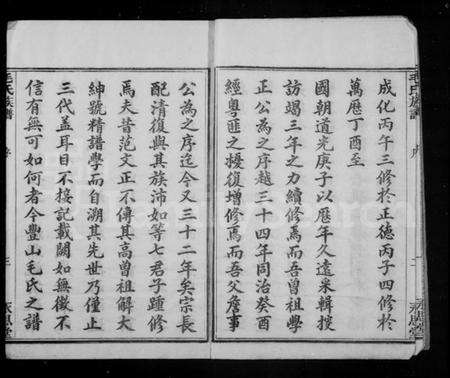 成化丙午三修於正德丙子四修於
萬歷丁酉至
國朝道光庚子以歷年久遠采輯授
訪竭三年之力續修焉而吾曾祖學
正公為之序越三十四年同治癸酉
經粵匪之擾復增修焉而吾父詹事
公為之序迄今又三十二年矣宗長
配清復與其族沛如等七君子踵修
焉夫昔范文正不傳其高曾祖解大
紳號精譜學而自溯其先世乃僅止
三代蓋耳目不接記載闕如無徵不
信有無可如何者今豐山毛氏之譜
毛氏族譜
序
三
永思堂
毛氏族譜